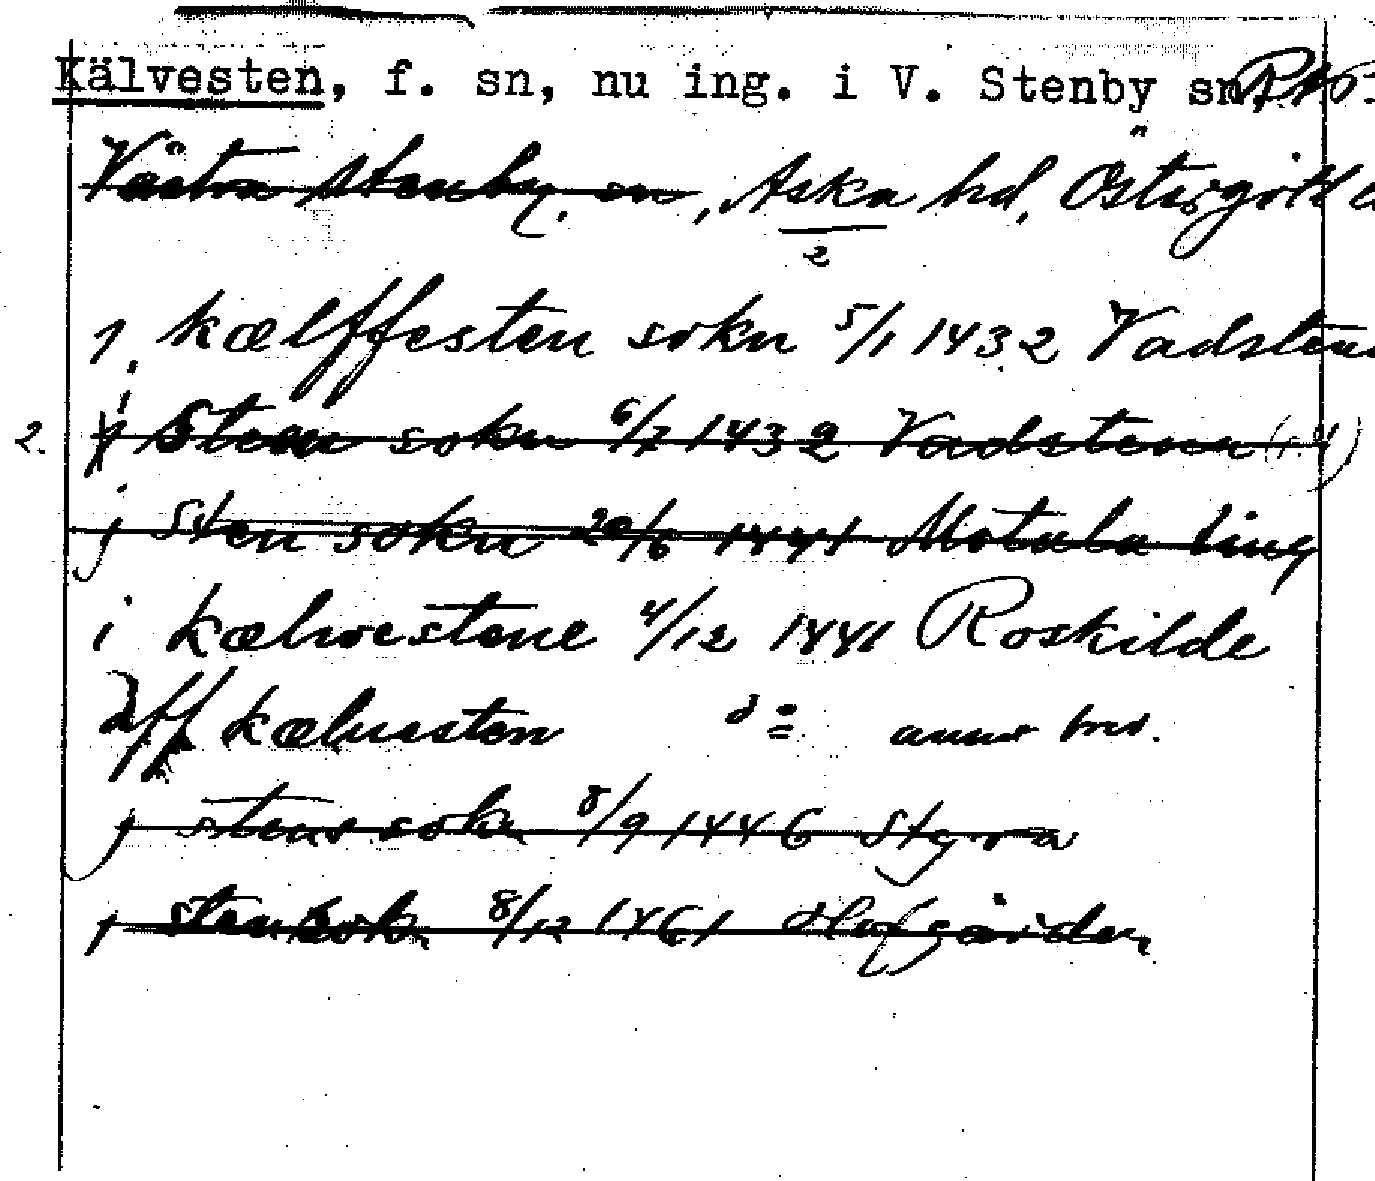 Kälvesten, f. sn, nu ing. i V. Stenby sn,
Västra Stenby sn, Aska hd, Östergötl
2
1. kælffesten sokn 5/1 1432 Vadstena
2. j Sten sokn 6/7 1432 Vadstena
j Sten sokn 20/6 1441 Motala ting
i kælwestene 4/12 1441 Roskilde
aff kæluesten d:o annat brev.
j stens sokn 8/9 1446 Styra
j sten sok. 8/12 1461 Hofgården